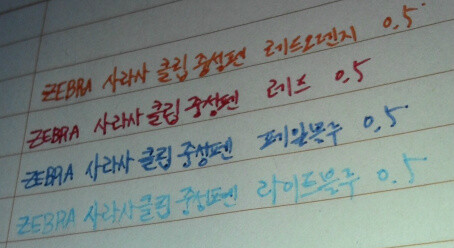 ZEBRA 사라사 클립 중성펜 레드오렌지 0.5
ZEBRA 사라사 클립 중성펜 레드 0.5
ZEBRA 사라사 클립 중성펜 페일블루 0.5
ZEBRA 사라사 클립 중성펜 라이트블루 0.5